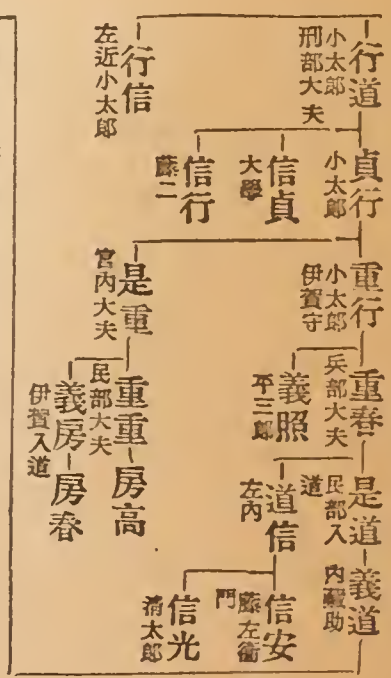 行道
小太郎
刑部大夫
行信
左近小太郎
貞行
小太郎
信貞
大學
信行
藤二
重行
小太郎
伊賀守
是重
宮内大夫
重春
兵部大夫
義照
平三郎
重重
民部大夫
房高
義房
伊賀入道
房春
是道
民部入道
道信
左内
義道
内蔵助
信安
藤左衞門
信光
淸太郎